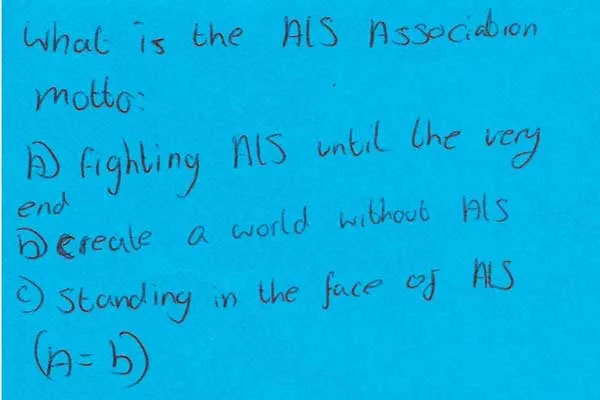 What is the ALS Association
motto:
A) fighting ALS until the very
end
b) create a world without ALS
c) Standing in the face of ALS
(A = b)